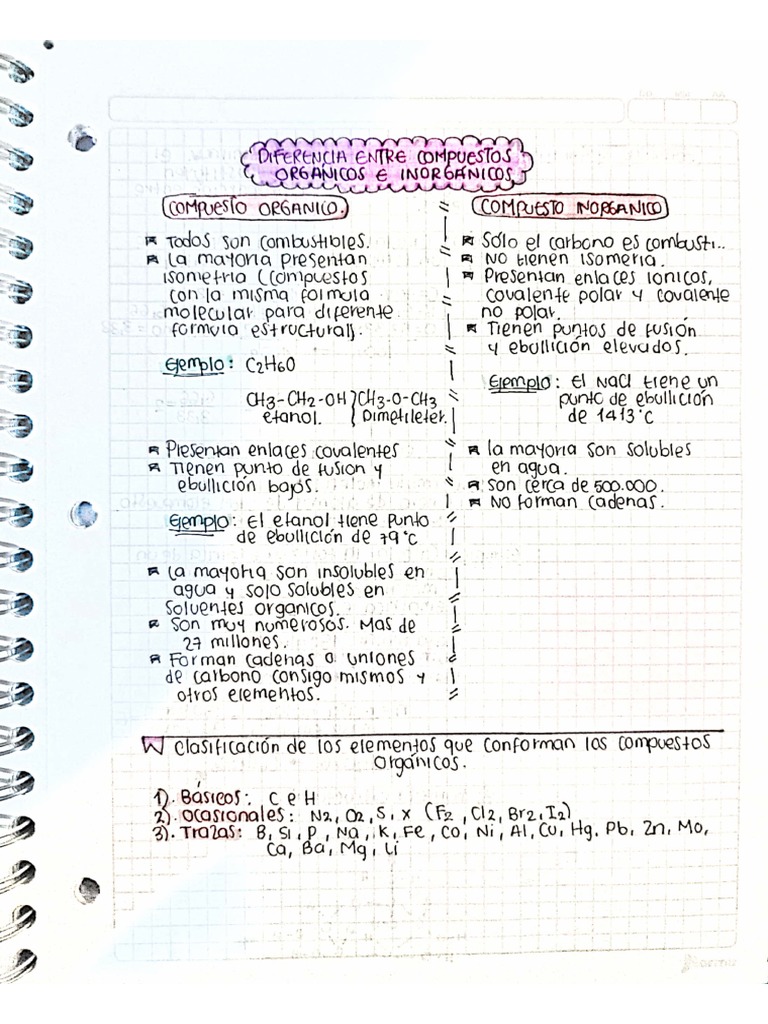 DIFERENCIA ENTRE COMPUESTOS
ORGÁNICOS E INORGÁNICOS
COMPUESTO ORGANICO.
Todos son combustibles.
La mayoria presentan
isometria (compuestos
con la misma formula
molecular para diferente
formula estructural).
Ejemplo: C2H6O
CH3-CH2-OH } CH3-O-CH3
etanol. Dimetileter.
Presentan enlaces covalentes
Tienen punto de fusion y
ebullición bajos.
Ejemplo: El etanol tiene punto
de ebullición de 79°C
La mayoria son insolubles en
agua y solo solubles en
solventes organicos.
Son muy numerosos. Mas de
27 millones.
Forman cadenas o uniones
de carbono consigo mismos y
otros elementos.
COMPUESTO INORGANICO
Sólo el carbono es combusti..
No tienen isomeria.
Presentan enlaces ionicos,
covalente polar y covalente
no polar.
Tienen puntos de fusión
y ebullición elevados.
Ejemplo: El NaCl tiene un
punto de ebullición
de 1413°C
la mayoria son solubles
en agua.
son cerca de 500.000.
No forman cadenas.
Clasificación de los elementos que conforman los compuestos
orgánicos.
1). Básicos: C e H
2). Ocasionales: N2, O2, S, X (F2, Cl2, Br2, I2)
3). Trazas: B, Si, P, Na, K, Fe, Co, Ni, Al, Cu, Hg, Pb, Zn, Mo,
Ca, Ba, Mg, Li